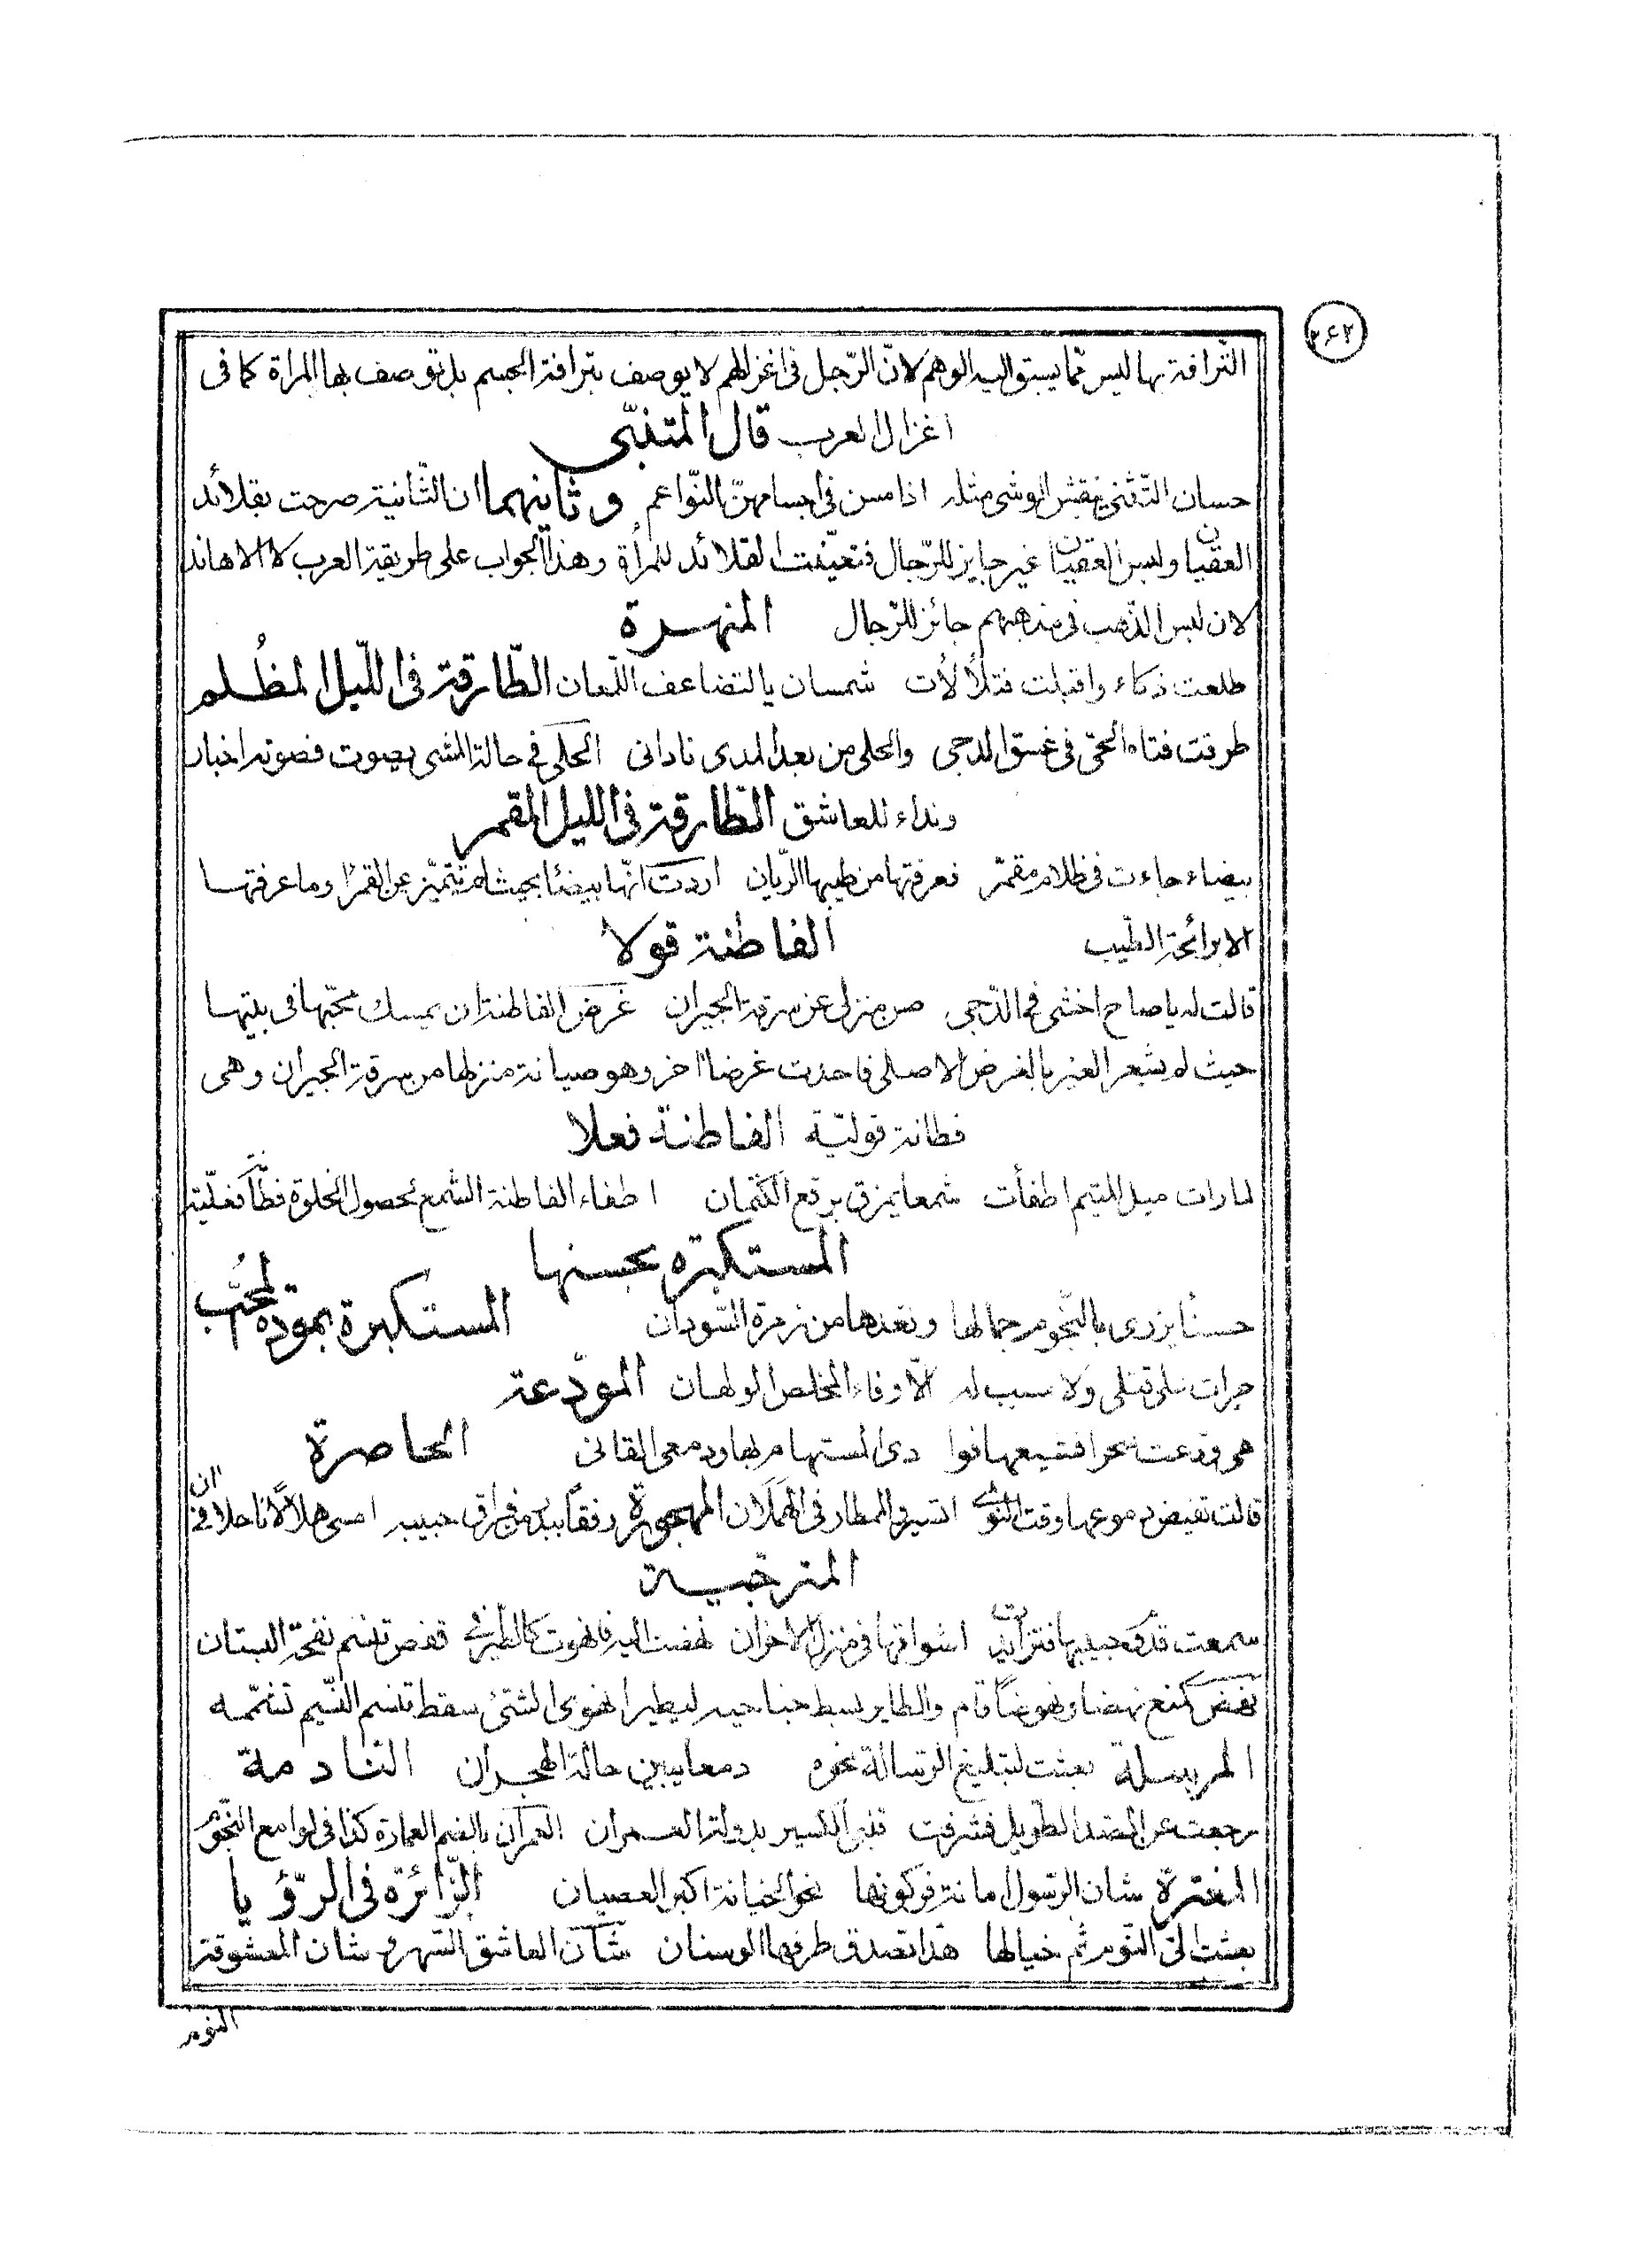 ٢٤٢
التّرافة بها ليس ممّا يستوا اليه الوهم لانّ الرّجل فى اغزالهم لا يوصف بترافة الجسم بل توصف بها المراة كما فى
اغزال العرب قال المتنبّى
حسان التّثنى ينقش الوشى مثله اذا مسن فى اجسامهنّ النّواعم وثانيهما ان الثّانية صرحت بقلائد
العقيان ولبس العقيان غير جايز للرّجال فتعيّنت القلائد للمرأة وهذا الجواب على طريقة العرب لا الاهاند
لان لبس الذّهب فى مذهبهم جائز للرّجال المنهرة
طلعت ذكاء واقبلت فتلألأت شمسان بالتضاعف اللّمعان الطّارقة فى اللّيل المظلم
طرقت فتاة الحىّ فى غسق الدجى والحلى من بعد المدى نادانى الحلى فى حالة المشى يصوت فصوته اخبار
ونداء للعاشق الطّارقة فى الليل المقمر
بيضاء جاءت فى ظلام مقمر فعرفتها من طيبها الريّان اردت انّها بيضاء بحيث لم تتميّز عن القمراء وما عرفتها
الا برائحة الطّيب الفاطنة قولا
قالت له يا صاح اخشى فى الدّجى صن منزلى عن سرقة الجيران غرض الفاطنة ان يمسك محبّها فى بيتها
حيث لم يشعر الغير بالغرض الاصلى فاحدث غرضا اخر وهو صيانة منزلها من سرقة الجيران وهى
فطانة قوليّة الفاطنة فعلا
لما رات ميل المتيم اطفأت شمعا يمزق برقع الكتمان اطفاء الفاطنة الشمع لحصول الخلوة فطانة فعليّة
المستكبرة بحسنها
حسناء يزرى بالنّجوم جمالها وتعدها من زمرة السّودان المستكبرة بمودة المحبّ
جرات على قتلى ولا سبب له الّا وفاء المخلص الولهان المودّعة
هى ودعت سحرا فشيعها فوا دى المستهام بها ودمعى القانى الحاصرة
قالت تفيض دموعها وقت النّوى اتسير والامطار فى الهملان المهجورة رفقا ببدر فى فراق حبيبه امسى هلالا ناحلا فى ان
المترجّية
سمعت قدوم حبيبها فتزايدت اشواقها فى منزل الاخوان نهضت اليه فاهوت كالطّير فى قفص تنسم نفحة البستان
نهض كمنع نهضا ونهوضا قام والطاير بسط جناحيه ليطير اهوى الشئ سقط تنسم النّسيم تشمّمه
المرسلة بعثت لتبليغ الرسالة نحوه دمعا يبين حالة الهجران النّادمة
رجعت عن الصّدّ الطّويل فشرفت قلبى الكسير بدولة العمران العمران بالضم العمارة كذا فى لوامع النّجوم
المغترة شان الرّسول امانة فركونها نحو الخيانة اكبر العصيان الزّائرة فى الرّؤيا
بعثت الىّ النّوم ثم خيالها هذا تصدق طرفها الوسنان شان العاشق السّهر و شان المعشوقة
النوم